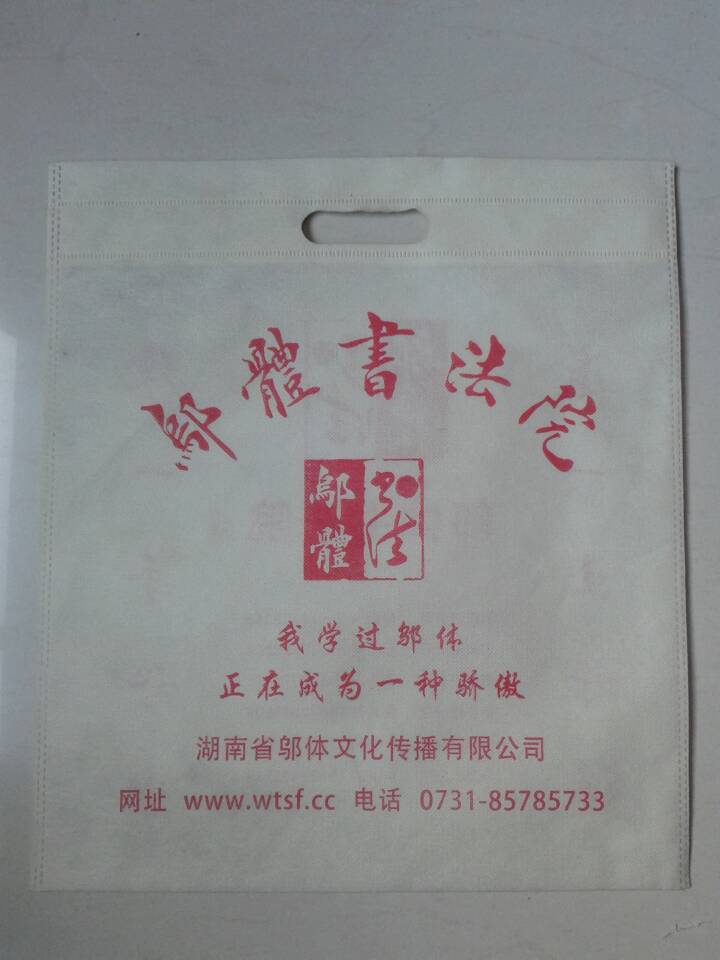 鄔體書法院
鄔體
书法
我学过邬体
正在成为一种骄傲
湖南省邬体文化传播有限公司
网址 www.wtsf.cc 电话 0731-85785733